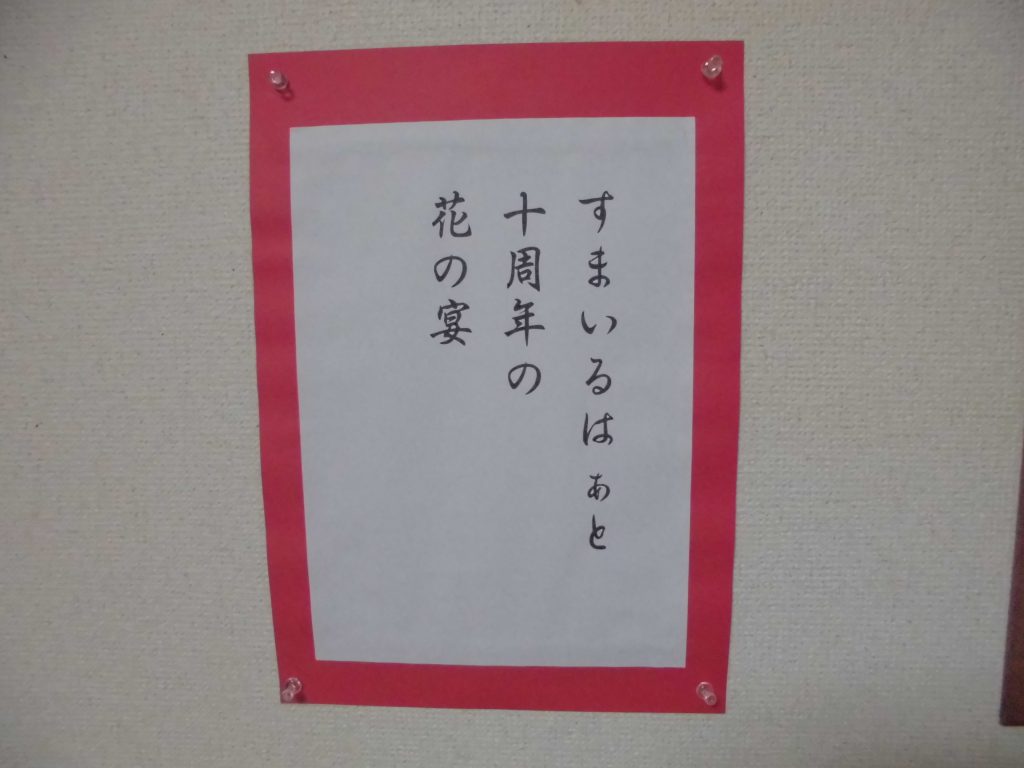 すまいるはぁと
十周年の
花の宴